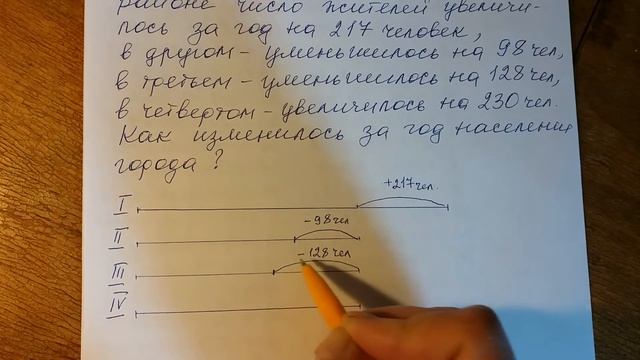 районе число жителей увеличи-
лось за год на 217 человек,
в другом - уменьшилось на 98 чел,
в третьем - уменьшилось на 128 чел,
в четвертом - увеличилось на 230 чел.
Как изменилось за год население
города?
I +217 чел.
II -98 чел
III -128 чел
IV